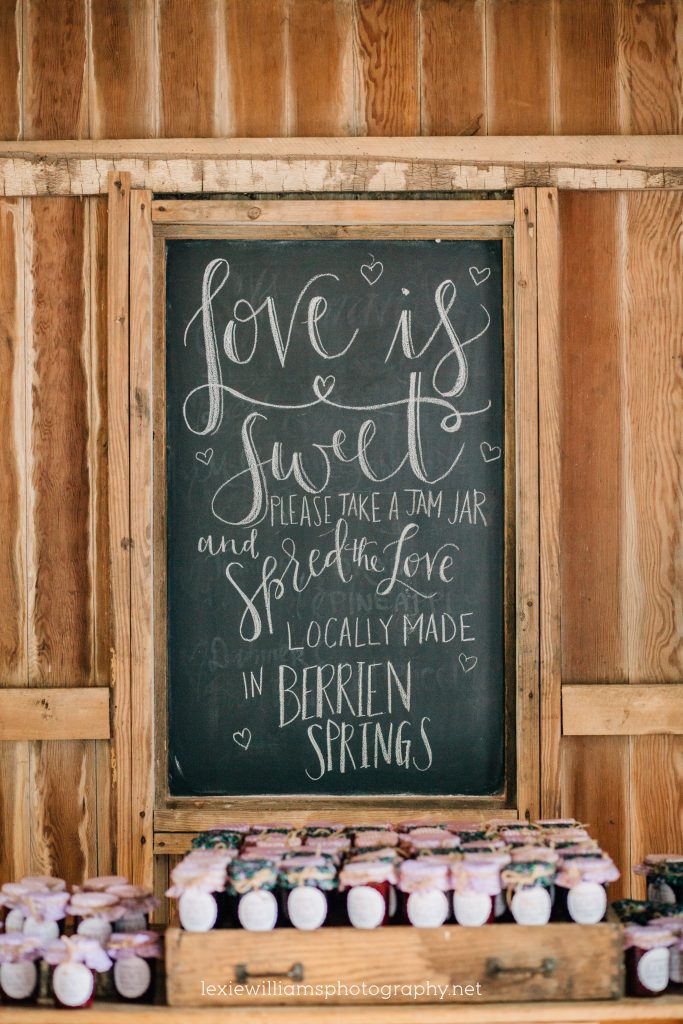 Love is
Sweet
PLEASE TAKE A JAM JAR
and Spred the Love
PINEAPPLE
LOCALLY MADE
IN BERRIEN
SPRINGS
lexiewilliamsphotography.net